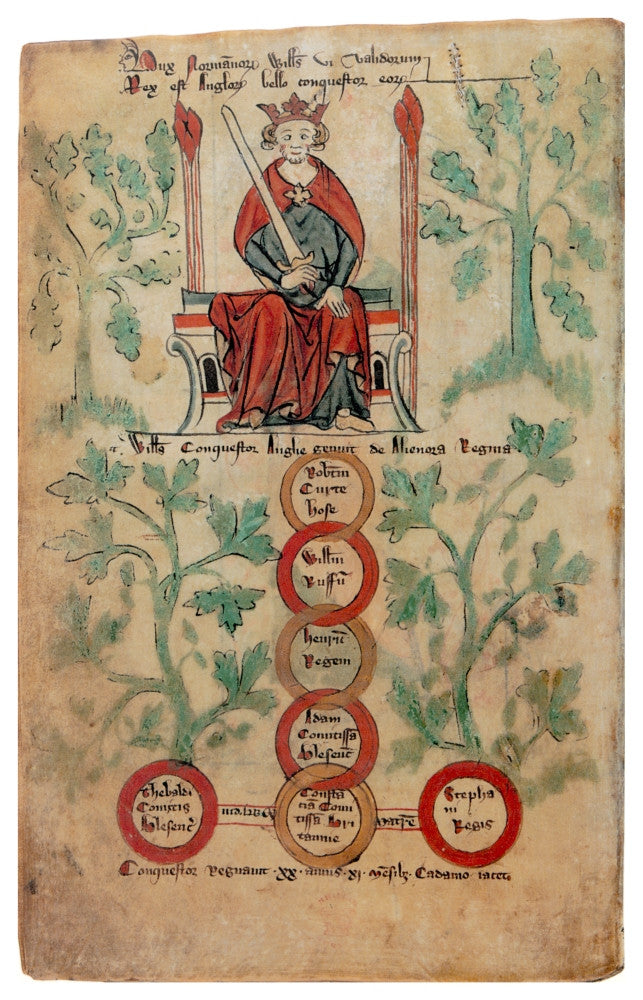 Dux Normannorum Willms vi validorum
Rex est Anglor bello conquestor eorum
Willms Conquestor Anglie genuit de Alienora Regina
Robtm
Curte
hose
Willm
Ruffum
henricum
Regem
Adam
Comitissa
blesens
Thebaldi
Comitis
blesens
Constã
ciã Comi
tissã Bri
tannie
Stepha
ni
Regis
Conquestor Regnavit .xx. annis .xi. mensibz. Cadamo iacet.